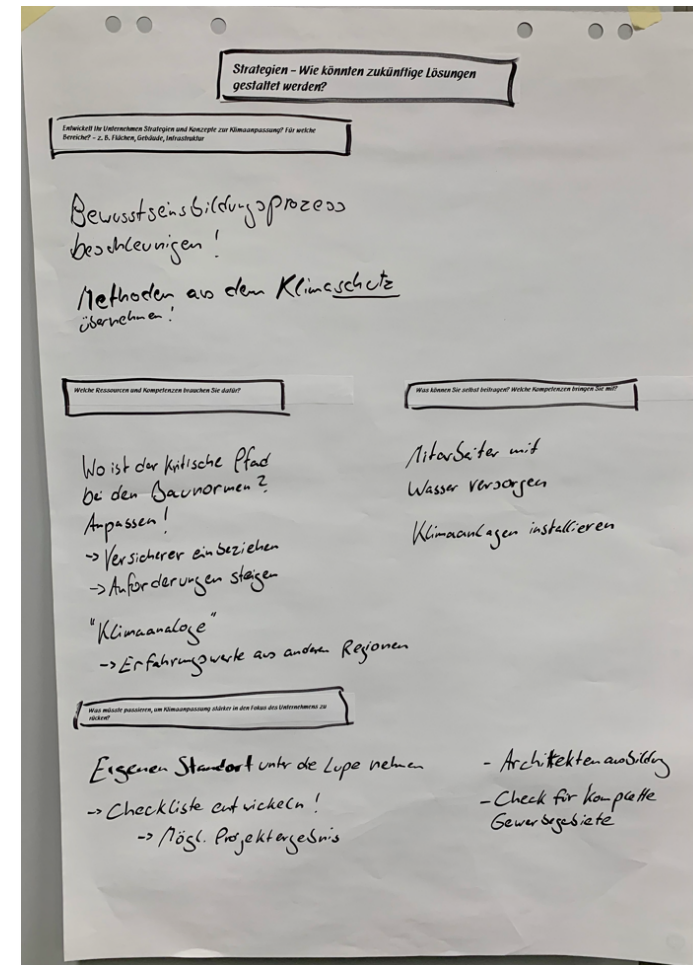 Strategien – Wie könnten zukünftige Lösungen
gestaltet werden?
Entwickelt Ihr Unternehmen Strategien und Konzepte zur Klimaanpassung? Für welche
Bereiche? – z. B. Flächen, Gebäude, Infrastruktur
Bewusstseinsbildungsprozess
beschleunigen!
Methoden aus dem Klimaschutz
übernehmen!
Welche Ressourcen und Kompetenzen brauchen Sie dafür?
Wo ist der kritische Pfad
bei den Baunormen?
Anpassen!
-> Versicherer einbeziehen
-> Anforderungen steigen
"Klimaanaloge"
-> Erfahrungswerte aus anderen Regionen
Was können Sie selbst beitragen? Welche Kompetenzen bringen Sie mit?
Mitarbeiter mit
Wasser versorgen
Klimaanlagen installieren
Was müsste passieren, um Klimaanpassung stärker in den Fokus des Unternehmens zu
rücken?
Eigenen Standort unter die Lupe nehmen
-> Checkliste entwickeln!
-> Mögl. Projektergebnis
- Architektenausbildung
- Check für komplette
Gewerbegebiete